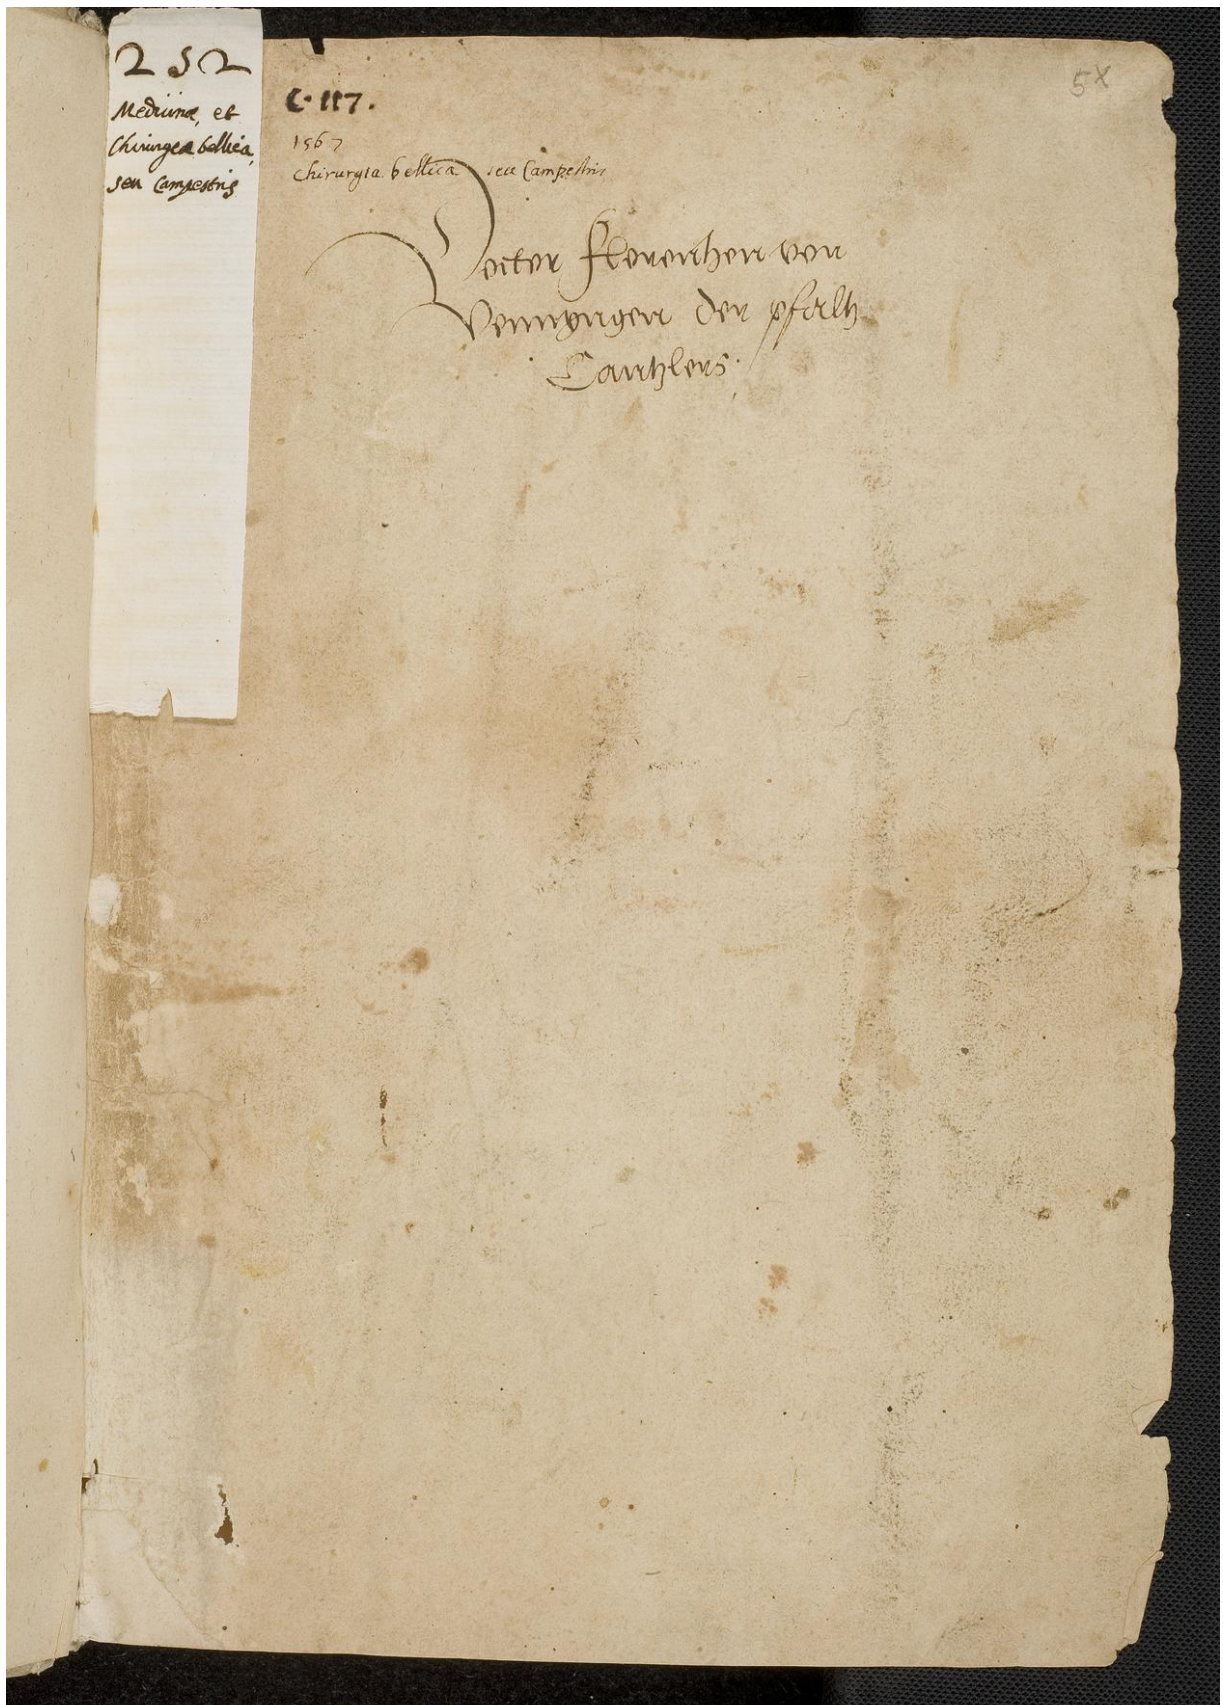 252
Medicina, et
Chirurgia bellica,
seu Campestris
C. 117.
1567
Chirurgia bellica seu Campestris
Docter Florenthen von
Vennyngen der pfaltz
Cantzlers
5x